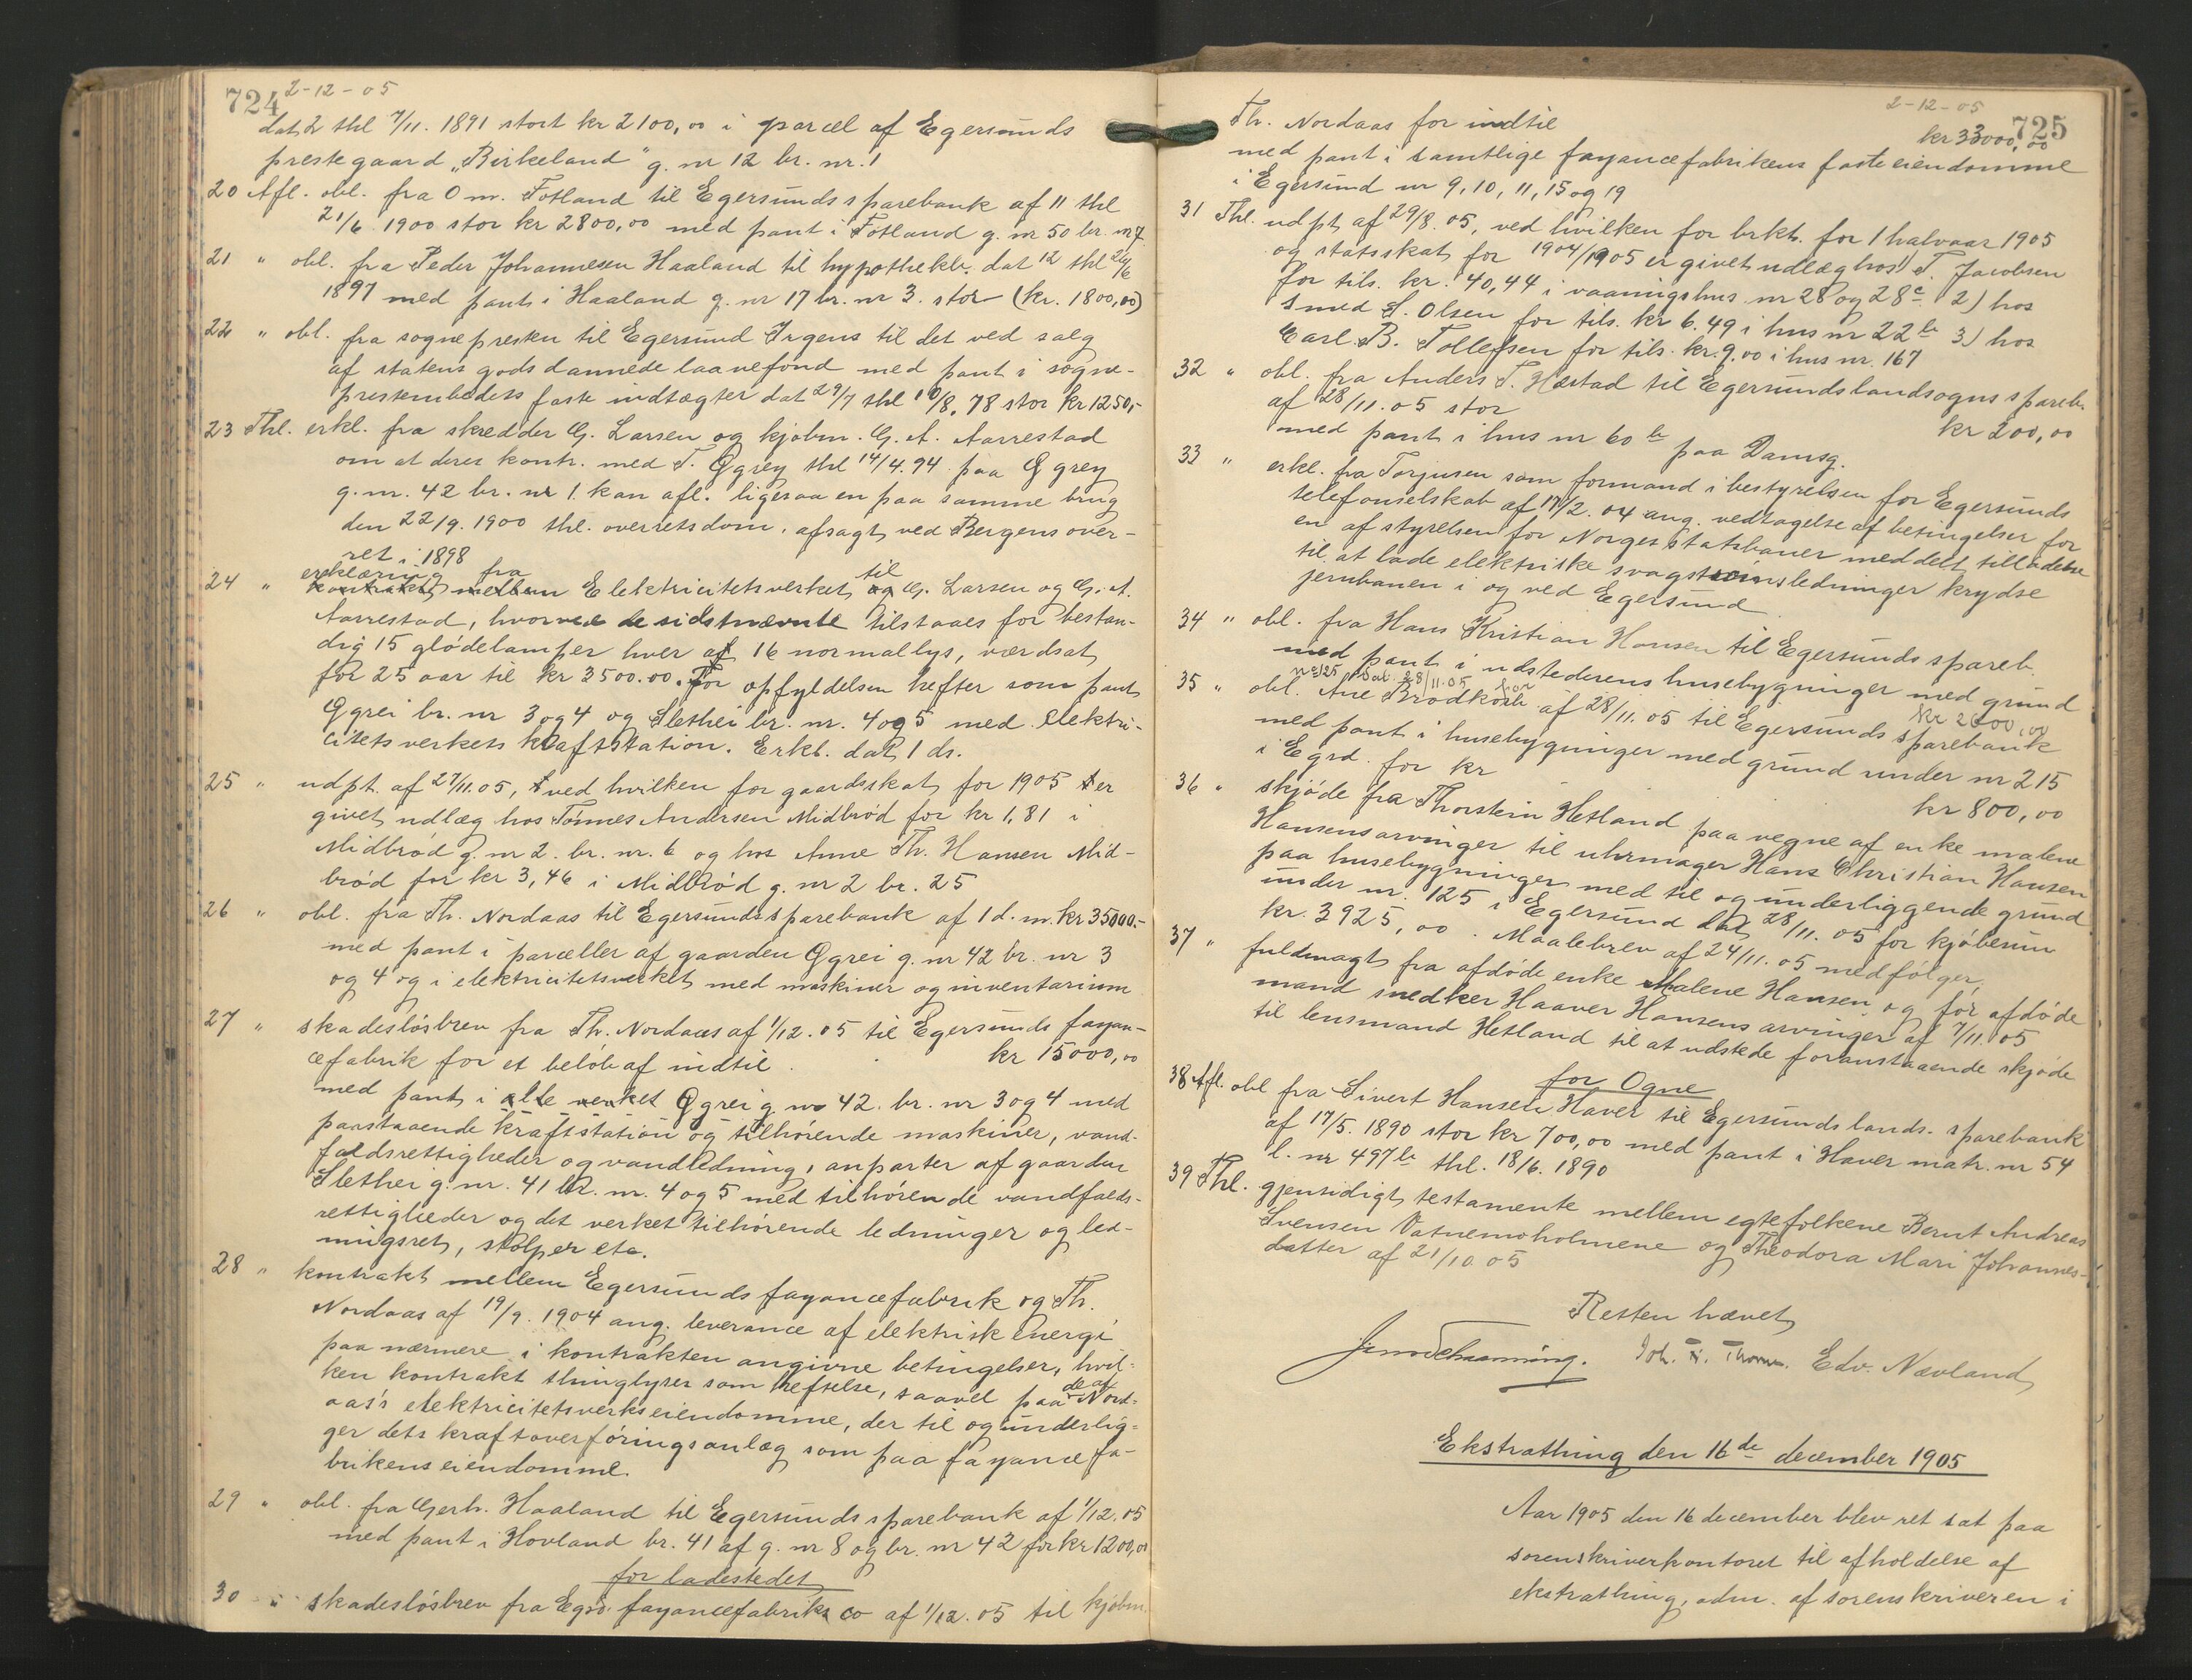 724 2-12-05
dat 2 thl 7/11. 1891 stort kr 2100,00 i parcel af Egersunds
prestegaard "Birkeland" g. nr 12 br. nr. 1
20 Afl. obl. fra O m. Fotland til Egersunds sparebank af 11 thl
21/6 1900 stor kr 2800,00 med pant i Fotland g. nr 50 br. nr 7
21 " obl. fra Peder Johannesen Haaland til hypothekb. dat 12 thl 26/6
1897 med pant i Haaland g. nr 17 br. nr 3. stor (kr. 1800,00)
22 " obl. fra sognepresten til Egersund Irgens til det ved salg
af statens gods dannede laanefond med pant i sogne-
prestembedets faste indtægter dat 29/7 thl 10/8. 78 stor kr 1250,-
23 Thl. erkl. fra skredder G. Larsen og kjøbm. G. A. Aarrestad
om at deres kontr. med T. Øgrey thl 14/4. 94 paa Øgrey
g. nr. 42 br. nr 1. kan afl. ligesaa en paa samme brug
den 22/9. 1900 thl. overretsdom, afsagt ved Bergens over-
ret i 1898
erklæring fra til
24 " kontrakt mellem Elektricitetsverket og G. Larsen og G. A.
Aarrestad, hvorved de sidstnævnte tilstaaes for bestan-
dig 15 glødelamper hver af 16 normallys, værdsat
for 25 aar til kr 3500.00. For opfyldelsen hefter som pant
Øgrei br. nr 3 og 4 og Slethei br. nr. 4 og 5 med elektri-
citetsverkets kraftstation. Erkl. dat 1 ds.
25 " udpt. af 27/11.05, ved hvilken for gaardsskat for 1905 er
givet udlæg hos Tønnes Andersen Midbrød for kr 1,81 i
Midbrød g. nr 2. br. nr. 6 og hos Anne Th. Hansen Mid-
brød for kr 3,46 i Midbrød g. nr 2 br. 25
26 " obl. fra Th. Nordaas til Egersunds sparebank af 1 d. m. kr 35000.-
med pant i parceller af gaarden Øgrei g. nr 42 br. nr 3
og 4 og i elektricitetsverket med maskiner og inventarium
27 " skadesløsbrev fra Th. Nordaas af 1/12. 05 til Egersunds fayan-
cefabrik for et beløb af indtil kr 15000,00
med pant i alle verket Øgrei g nr 42. br. nr 3 og 4 med
paastaaende kraftstation og tilhørende maskiner, vand-
faldsrettigheder og vandledning, anparter af gaarden
Slethei g. nr. 41 br. nr. 4 og 5 med tilhørende vandfalds-
rettigheder og det verket tilhørende ledninger og led-
ningsret, stolper etc.
28 " kontrakt mellem Egersunds fayancefabrik og Th.
Nordaas af 19/9. 1904 ang. leverance af elektrisk energi
paa nærmere i kontrakten angivne betingelser, hvil-
ken kontrakt thinglyses som heftelse, saavel paa de af Nord-
aas's elektricitetsverks eiendomme, der til og underlig-
ger dets kraftoverføringsanlæg som paa fayancefa-
brikens eiendomme.
29 " obl. fra Gerh. Haaland til Egersunds sparebank af 1/12. 05
med pant i Hovland br. 41 af g. nr 8 og br. nr 42 for kr 1200,00
for ladestedet
30 " skadesløsbrev fra Egsd. fayancefabriks co af 1/12. 05 til kjøbm.
2-12-05
725
Th. Nordaas for indtil kr 33000,00
med pant i samtlige fayancefabrikens faste eiendomme
i Egersund nr 9, 10, 11, 15 og 19
31 Thl. udpt. af 29/8. 05, ved hvilken for brkt. for 1 halvaar 1905
og statsskat for 1904/1905 er givet udlæg hos 1) T. Jacobsen
for tils. kr. 40,44 i vaaningshus nr 28 og 28c 2) hos
smed S. Olsen for tils. kr 6.49 i hus nr 22b 3) hos
Carl B. Tollefsen for tils. kr. 9.00 i hus nr. 167
32 " obl. fra Anders T. Hæstad til Egersunds landsogns spareb.
af 28/11. 05 stor kr 200,00
med pant i hus nr 60b paa Damsg.
33 " erkl. fra Torjusen som formand i bestyrelsen for Egersunds
telefonselskab af 17/2. 04 ang. vedtagelse af betingelser for
en af styrelsen for Norges statsbaner meddelt tilladelse
til at lade elektriske svagstrømsledninger krydse
jernbanen i og ved Egersund
34 " obl. fra Hans Kristian Hansen til Egersunds spareb.
med pant i udstederens husebygninger med grund
no 125 dat. 28/11.05 for kr 2600,00
35 " obl. Ane Brodkorb af 28/11. 05 til Egersunds sparebank
med pant i husebygninger med grund under nr 215
i Egsd. for kr kr 800,00
36 " skjøde fra Thorstein Hetland paa vegne af enke malene
Hansens arvinger til uhrmager Hans Christian Hansen
paa husebygninger med til og underliggende grund
under nr. 125 i Egersund dat 28/11. 05 for kjøbesum
kr. 3925,00. Maalebrev af 24/11. 05 medfølger,
37 " fuldmagt fra afdøde enke Malene Hansen og før afdøde
mand snedker Haaver Hansens arvinger af 7/11. 05
til lensmand Hetland til at udstede foranstaaende skjøde
for Ogne
38 Afl. obl fra Sivert Hansen Haver til Egersunds lands. sparebank
af 17/5. 1890 stor kr 700,00 med pant i Haver matr. nr 54
l. nr 497b thl. 18/6. 1890
39 Thl. gjensidigt testamente mellem egtefolkene Bernt Andreas
Svensen Vatnemoholmene og Theodora Mari Johannes-
datter af 21/10 05
Retten hævet
Joh. Edv. Nævland
Ekstrathing den 16de december 1905
Aar 1905 den 16 december blev ret sat paa
sorenskriverkontoret til afholdelse af
ekstrathing, adm. af sorenskriveren i